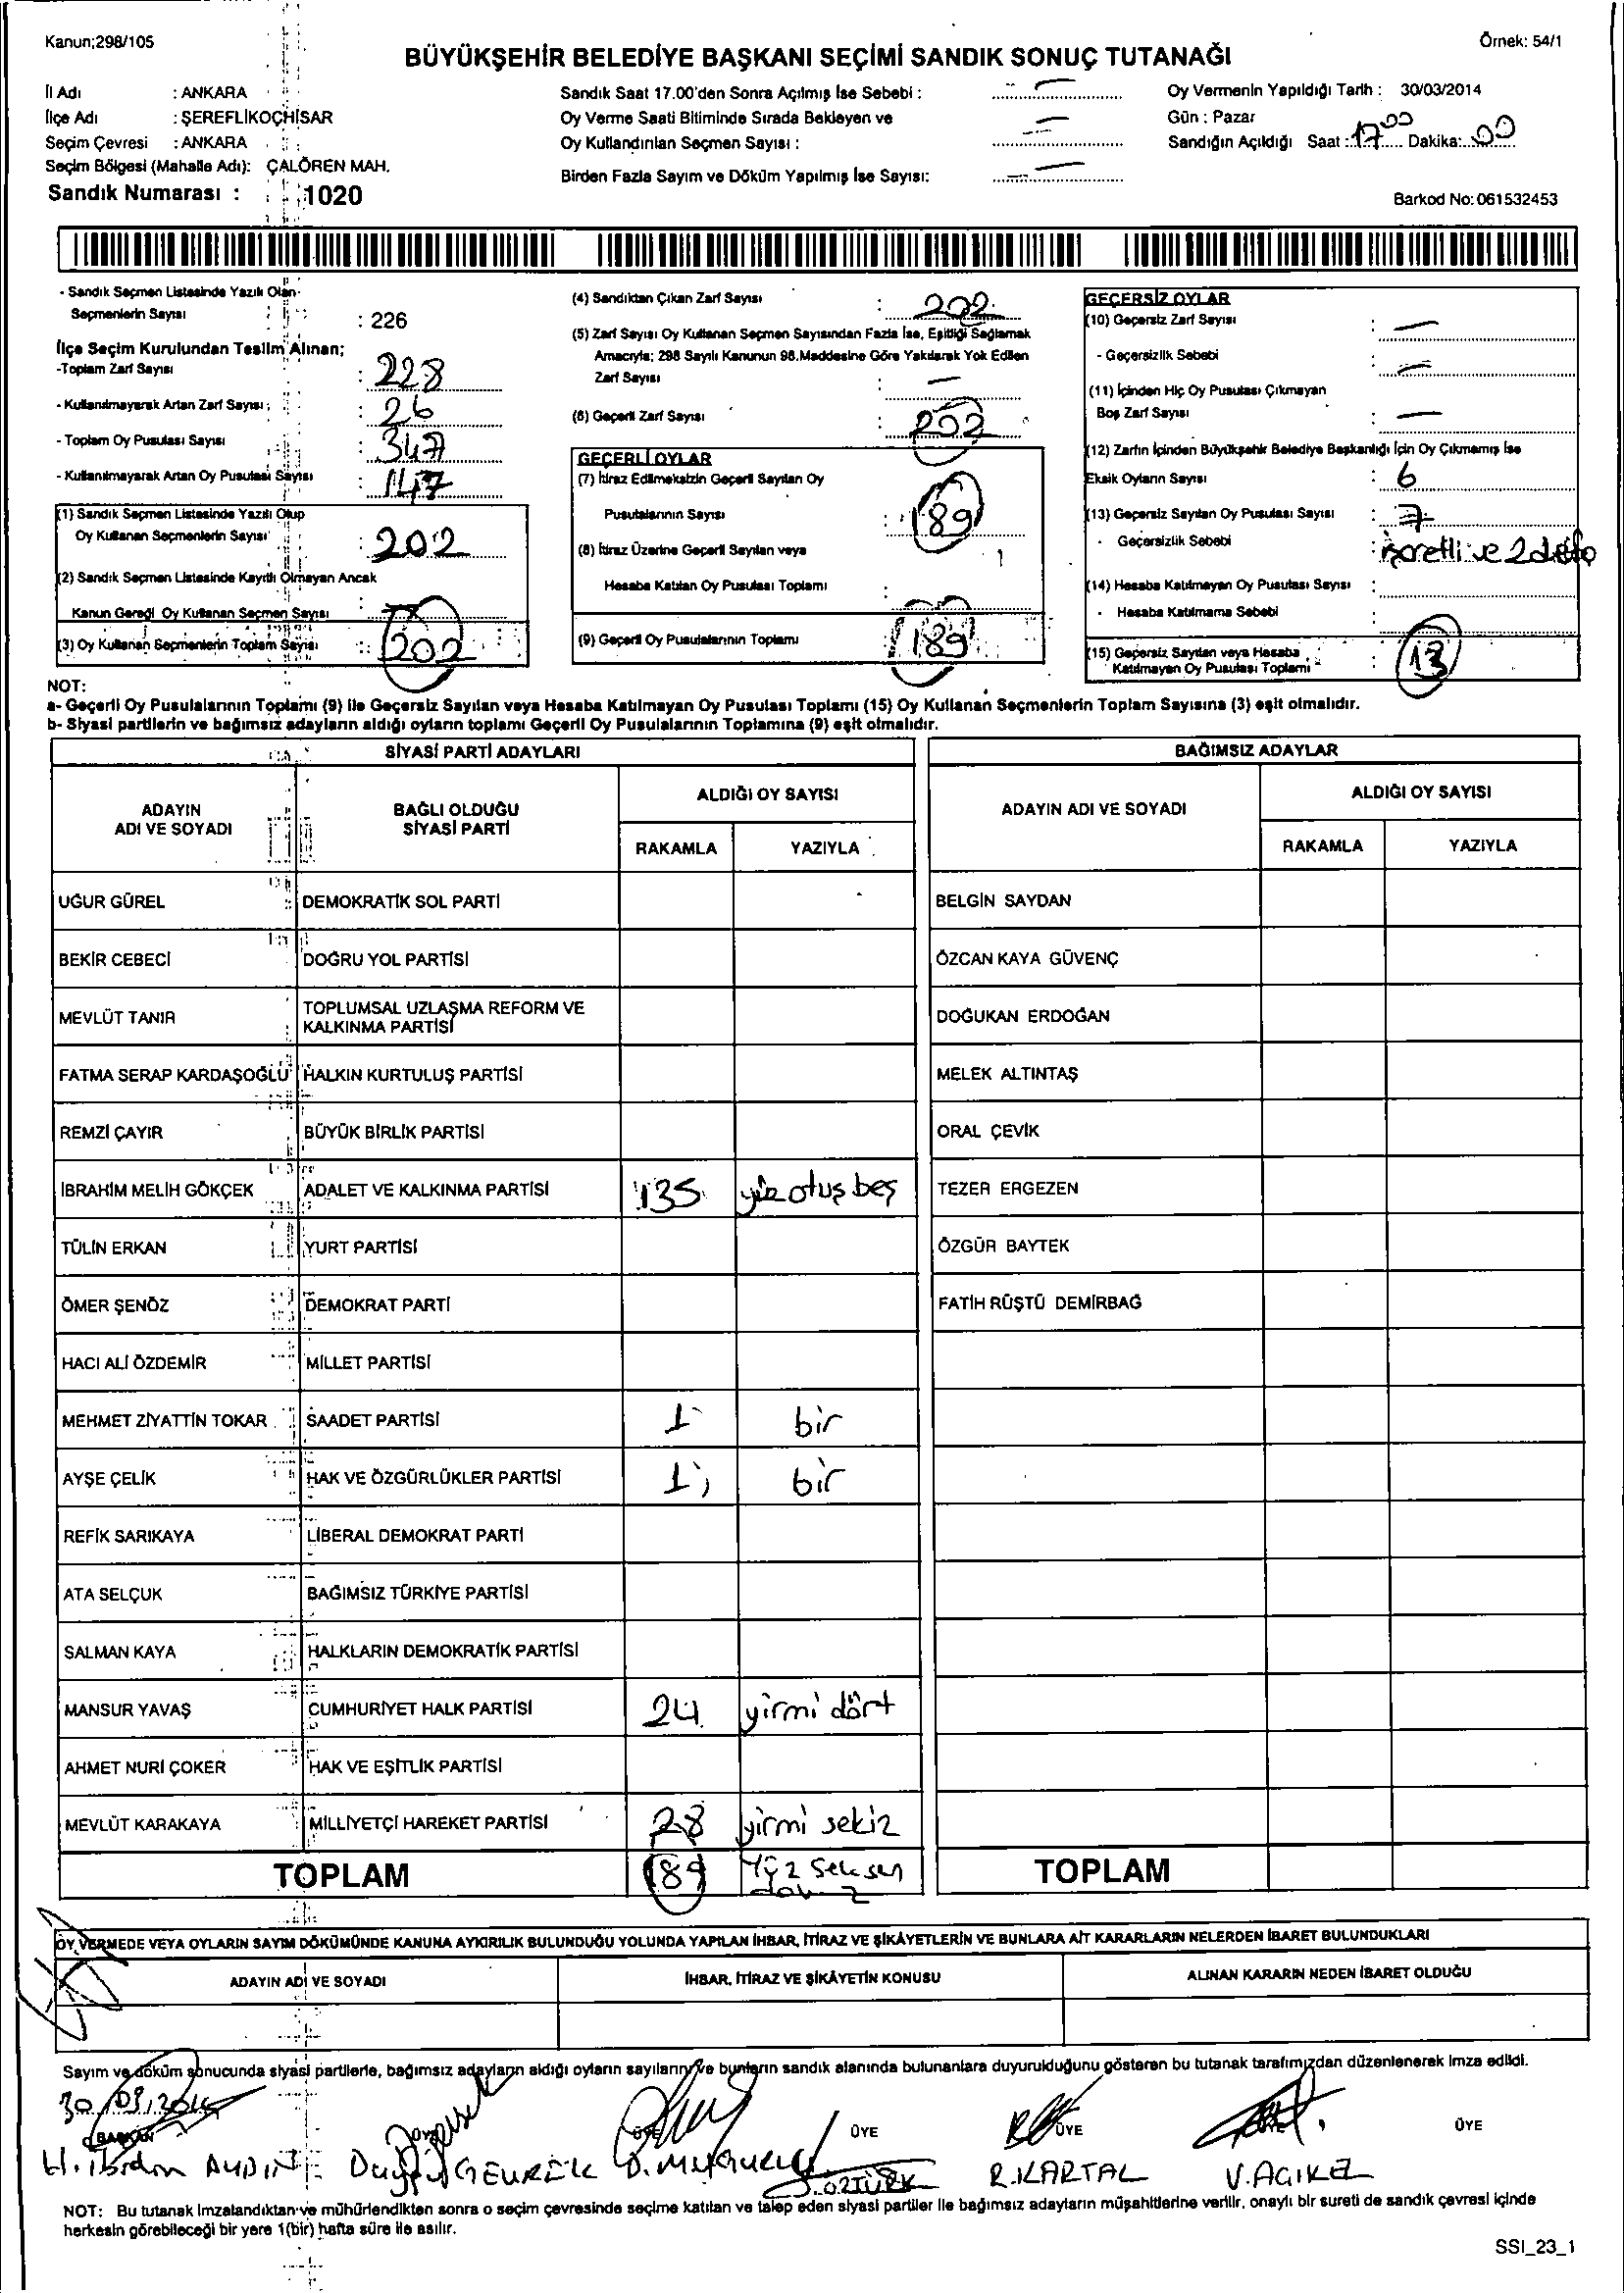 Kanun;298/105
Örnek: 54/1
BÜYÜKŞEHİR BELEDİYE BAŞKANI SEÇİMİ SANDIK SONUÇ TUTANAĞI
İl Adı : ANKARA
İlçe Adı : ŞEREFLİKOÇHİSAR
Seçim Çevresi : ANKARA
Seçim Bölgesi (Mahalle Adı): ÇALÖREN MAH.
Sandık Numarası : 1020
Sandık Saat 17.00'den Sonra Açılmış İse Sebebi : —
Oy Verme Saati Bitiminde Sırada Bekleyen ve —
Oy Kullandırılan Seçmen Sayısı : —
Birden Fazla Sayım ve Döküm Yapılmış İse Sayısı: —
Oy Vermenin Yapıldığı Tarih : 30/03/2014
Gün : Pazar
Sandığın Açıldığı Saat : 17 00 Dakika: 00
Barkod No: 061532453
- Sandık Seçmen Listesinde Yazılı Olan
Seçmenlerin Sayısı : 226
İlçe Seçim Kurulundan Teslim Alınan;
-Toplam Zarf Sayısı : 228
- Kullanılmayarak Artan Zarf Sayısı : 26
- Toplam Oy Pusulası Sayısı : 347
- Kullanılmayarak Artan Oy Pusulası Sayısı : 147
(1) Sandık Seçmen Listesinde Yazılı Olup
Oy Kullanan Seçmenlerin Sayısı : 202
(2) Sandık Seçmen Listesinde Kayıtlı Olmayan Ancak
Kanun Gereği Oy Kullanan Seçmen Sayısı :
(3) Oy Kullanan Seçmenlerin Toplam Sayısı : 202
(4) Sandıktan Çıkan Zarf Sayısı : 202
(5) Zarf Sayısı Oy Kullanan Seçmen Sayısından Fazla İse, Eşitliği Sağlamak
Amacıyla; 298 Sayılı Kanunun 98.Maddesine Göre Yakılarak Yok Edilen
Zarf Sayısı : —
(6) Geçerli Zarf Sayısı : 202
GEÇERLİ OYLAR
(7) İtiraz Edilmeksizin Geçerli Sayılan Oy
Pusulalarının Sayısı : 189
(8) İtiraz Üzerine Geçerli Sayılan veya
Hesaba Katılan Oy Pusulası Toplamı : —
(9) Geçerli Oy Pusulalarının Toplamı : 189
GEÇERSİZ OYLAR
(10) Geçersiz Zarf Sayısı : —
- Geçersizlik Sebebi : —
(11) İçinden Hiç Oy Pusulası Çıkmayan
Boş Zarf Sayısı : —
(12) Zarfın İçinden Büyükşehir Belediye Başkanlığı İçin Oy Çıkmamış İse
Eksik Oyların Sayısı : 6
(13) Geçersiz Sayılan Oy Pusulası Sayısı : 7
- Geçersizlik Sebebi : işaretli ve 2 defa
(14) Hesaba Katılmayan Oy Pusulası Sayısı :
- Hesaba Katılmama Sebebi :
(15) Geçersiz Sayılan veya Hesaba
Katılmayan Oy Pusulası Toplamı : 13
NOT:
a- Geçerli Oy Pusulalarının Toplamı (9) ile Geçersiz Sayılan veya Hesaba Katılmayan Oy Pusulası Toplamı (15) Oy Kullanan Seçmenlerin Toplam Sayısına (3) eşit olmalıdır.
b- Siyasi partilerin ve bağımsız adayların aldığı oyların toplamı Geçerli Oy Pusulalarının Toplamına (9) eşit olmalıdır.
SİYASİ PARTİ ADAYLARI
ADAYIN ADI VE SOYADI BAĞLI OLDUĞU SİYASİ PARTİ ALDIĞI OY SAYISI
RAKAMLA YAZIYLA
UĞUR GÜREL DEMOKRATİK SOL PARTİ
BEKİR CEBECİ DOĞRU YOL PARTİSİ
MEVLÜT TANIR TOPLUMSAL UZLAŞMA REFORM VE
KALKINMA PARTİSİ
FATMA SERAP KARDAŞOĞLU HALKIN KURTULUŞ PARTİSİ
REMZİ ÇAYIR BÜYÜK BİRLİK PARTİSİ
İBRAHİM MELİH GÖKÇEK ADALET VE KALKINMA PARTİSİ 135 yüz otuş beş
TÜLİN ERKAN YURT PARTİSİ
ÖMER ŞENÖZ DEMOKRAT PARTİ
HACI ALİ ÖZDEMİR MİLLET PARTİSİ
MEHMET ZİYATTİN TOKAR SAADET PARTİSİ 1 bir
AYŞE ÇELİK HAK VE ÖZGÜRLÜKLER PARTİSİ 1 bir
REFİK SARIKAYA LİBERAL DEMOKRAT PARTİ
ATA SELÇUK BAĞIMSIZ TÜRKİYE PARTİSİ
SALMAN KAYA HALKLARIN DEMOKRATİK PARTİSİ
MANSUR YAVAŞ CUMHURİYET HALK PARTİSİ 24 yirmi dört
AHMET NURİ ÇOKER HAK VE EŞİTLİK PARTİSİ
MEVLÜT KARAKAYA MİLLİYETÇİ HAREKET PARTİSİ 28 yirmi sekiz
TOPLAM 189 Yüz Seksen
dokuz
BAĞIMSIZ ADAYLAR
ADAYIN ADI VE SOYADI ALDIĞI OY SAYISI
RAKAMLA YAZIYLA
BELGİN SAYDAN
ÖZCAN KAYA GÜVENÇ
DOĞUKAN ERDOĞAN
MELEK ALTINTAŞ
ORAL ÇEVİK
TEZER ERGEZEN
ÖZGÜR BAYTEK
FATİH RÜŞTÜ DEMİRBAĞ
TOPLAM
OY VERMEDE VEYA OYLARIN SAYIM DÖKÜMÜNDE KANUNA AYKIRILIK BULUNDUĞU YOLUNDA YAPILAN İHBAR, İTİRAZ VE ŞİKÂYETLERİN VE BUNLARA AİT KARARLARIN NELERDEN İBARET BULUNDUKLARI
ADAYIN ADI VE SOYADI İHBAR, İTİRAZ VE ŞİKÂYETİN KONUSU ALINAN KARARIN NEDEN İBARET OLDUĞU
Sayım ve döküm sonucunda siyasi partilerle, bağımsız adayların aldığı oyların sayılarını ve bunların sandık alanında bulunanlara duyurulduğunu gösteren bu tutanak tarafımızdan düzenlenerek imza edildi.
30/03/2014
BAŞKAN ÜYE ÜYE ÜYE ÜYE ÜYE ÜYE
H. İbrahim AYDIN GEVREK ÖZTÜRK R.KARTAL V.AÇIKEL
NOT: Bu tutanak imzalandıktan ve mühürlendikten sonra o seçim çevresinde seçime katılan ve talep eden siyasi partiler ile bağımsız adayların müşahitlerine verilir, onaylı bir sureti de sandık çevresi içinde
herkesin görebileceği bir yere 1(bir) hafta süre ile asılır.
SSI_23_1